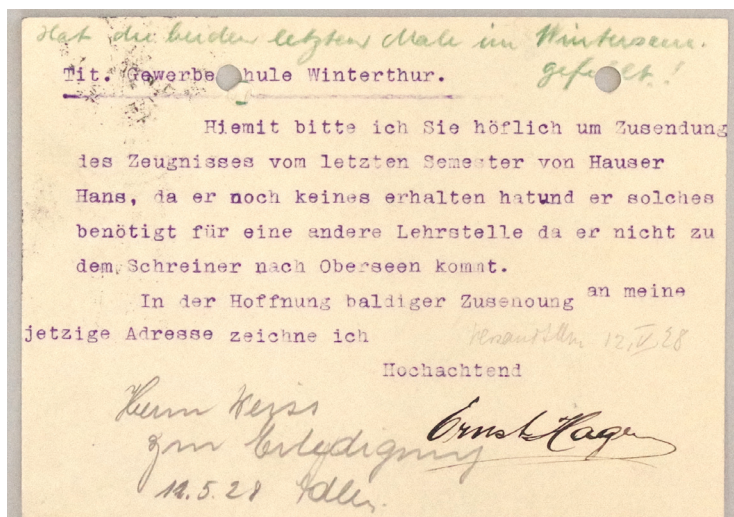 Hat die beiden letzten Male im Wintersem.
gefehlt!
Tit. Gewerbeschule Winterthur.
Hiemit bitte ich Sie höflich um Zusendung
des Zeugnisses vom letzten Semester von Hauser
Hans, da er noch keines erhalten hatund er solches
benötigt für eine andere Lehrstelle da er nicht zu
dem Schreiner nach Oberseen kommt.
In der Hoffnung baldiger Zusenoung an meine
jetzige Adresse zeichne ich
12. V. 28
Hochachtend
Herrn Weiss
zur Erledigung
Ernst Hagen
12.5.28